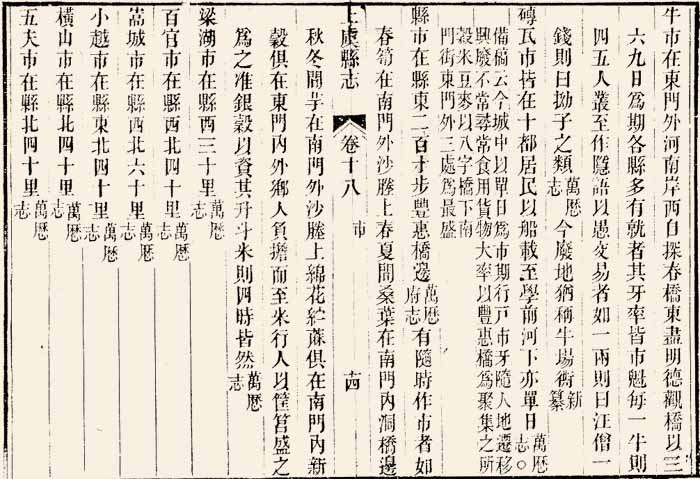 牛市在東門外河南岸西自探春橋東盡明德觀橋以三
六九日爲期各縣多有就者其牙率皆市魁每一牛則
四五人叢至作隱語以愚交易者如一兩則曰汪僧一
錢則曰拗子之類萬厯志今廢地猶稱牛場衖新纂
磚瓦市皆在十都居民以船載至學前河下亦單日萬厯志○
備稿云今城中以單日爲市期行戸市牙隨人地遷移
興廢不常尋常食用貨物大率以豐惠橋爲聚集之所
穀米豆麥以八字橋下南
門街東門外三處爲最盛
縣市在縣東二百才步豐惠橋邊萬厯府志有隨時作市者如
春筍在南門外沙塍上春夏間桑葉在南門內洞橋邊
上虞縣志
卷十八
市
十四
秋冬間芋在南門外沙塍上綿花綜蔴俱在南門內新
穀俱在東門內外鄉人負擔而至米行人以筐筥盛之
爲之准銀穀以資其升斗米則四時皆然萬厯志
梁湖市在縣西三十里萬厯志
百官市在縣西北四十里萬厯志
嵩城市在縣西北六十里萬厯志
小越市在縣東北四十里萬厯志
橫山市在縣北四十里萬厯志
五夫市在縣北四十里萬厯志